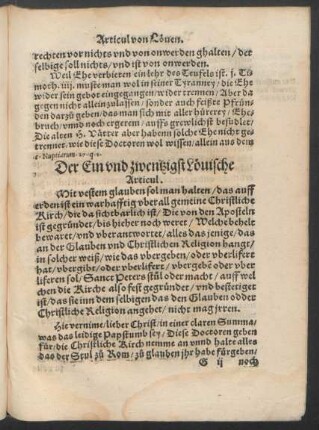 Articul von Löuen.
rechten vor nichts vnd von onwerden ghalten / der
selbige soll nichts / vnd ist von onwerden.
Weil Ehe verbieten ein lehr des Teufels ist. j. Ti-
moth. iiij. muste man wol in seiner Tyranney / die Ehe
wider sein gebot eingangen / wider trennen / Aber da
gegen nicht allein zulassen / sonder auch feißte Pfrün-
den darzů geben / das man sich mit aller hůrerey / Ehe-
bruch / vnnd noch ergerem / auffs grewlichst besudlet /
Die alten H. Vätter aber haben solche Ehe nicht ge-
trennet / wie diese Doctoren wol wissen / allein aus dem
c. Nuptiarum. 27. q. 1.
Der Ein vnd zwentzigst Löuische
Articul.
Mit vestem glauben sol man halten / das auff
erden ist ein warhafftig vberall gemeine Christliche
Kirch / die da sichtbarlich ist / Die von den Aposteln
ist gegründet / bis hieher noch weret / Welche behelt
bewaret / vnd verantwortet / alles das jenige / das
an der Glauben vnd Christlichen Religion hangt /
in solcher weiß / wie das vbergeben / oder vberlifert
hat / vbergibt / oder vberlifert / vbergebē oder vber
liferen sol / Sanct Peters stůl oder macht / auff wel
chen die Kirche also fest gegründet / vnd bestetiget
ist / das sie inn dem selbigen das den Glauben odder
Christliche Religion angehet / nicht mag jrren.
Hie vernime / lieber Christ / in einer claren Summa /
was das leidige Papstumb sey / Diese Doctoren geben
für / die Christliche Kirch nemme an vnnd halte alles
das der Stul zů Rom / zů glauben jhr habe fürgeben /
G ij noch